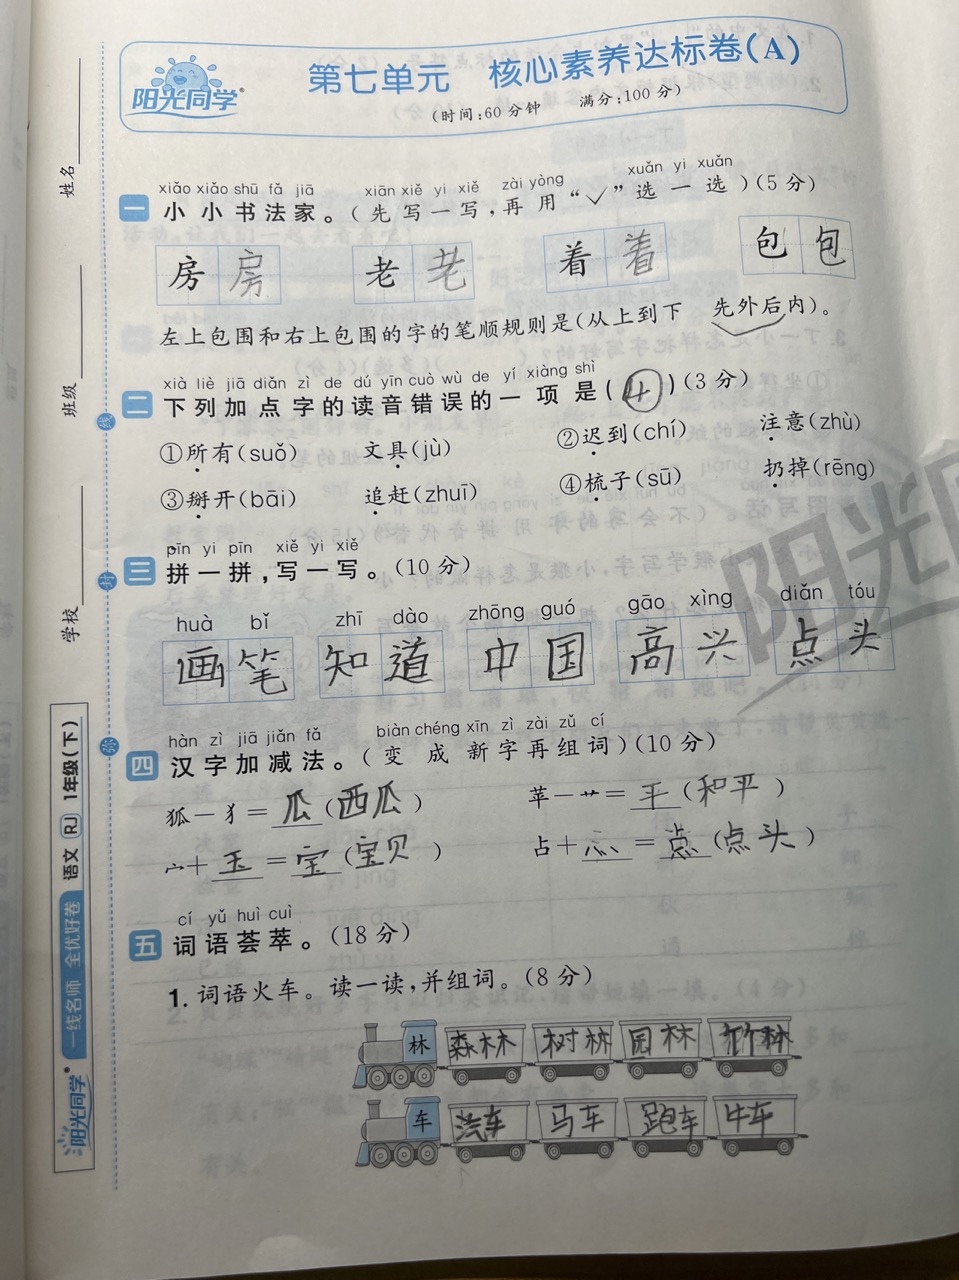 阳光同学
第七单元 核心素养达标卷(A)
(时间:60分钟 满分:100分)
xiǎo xiǎo shū fǎ jiā xiān xiě yi xiě zài yòng xuǎn yi xuǎn
一 小小书法家。(先写一写,再用“✓”选一选)(5分)
房 房 老 老 着 着 包 包
左上包围和右上包围的字的笔顺规则是(从上到下 先外后内)。
xià liè jiā diǎn zì de dú yīn cuò wù de yí xiàng shì
二 下列加点字的读音错误的一项是(4)(3分)
①所有(suǒ) 文具(jù) ②迟到(chí) 注意(zhù)
③掰开(bāi) 追赶(zhuī) ④梳子(sū) 扔掉(rēng)
pīn yi pīn xiě yi xiě
三 拼一拼,写一写。(10分)
huà bǐ zhī dào zhōng guó gāo xìng diǎn tóu
画笔 知道 中国 高兴 点头
hàn zì jiā jiǎn fǎ biàn chéng xīn zì zài zǔ cí
四 汉字加减法。(变成新字再组词)(10分)
狐-犭=瓜(西瓜) 苹-艹=平(和平)
宀+玉=宝(宝贝) 占+灬=点(点头)
cí yǔ huì cuì
五 词语荟萃。(18分)
1. 词语火车。读一读,并组词。(8分)
林 森林 树林 园林 竹林
车 汽车 马车 跑车 牛车
姓名
班级
学校
线
封
弥
阳光同学 一线名师 全优好卷 语文 RJ 1年级(下)
阳光同